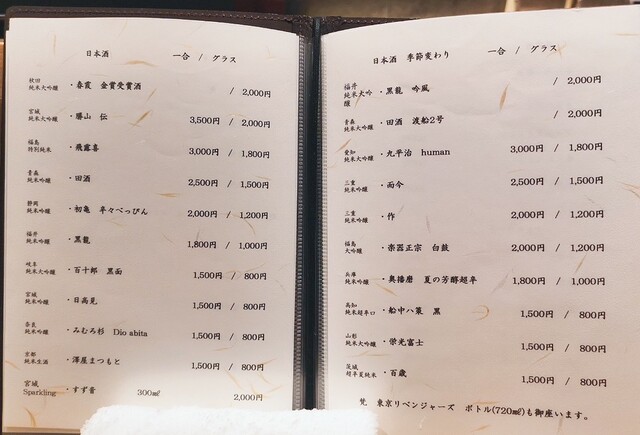 日本酒 一合 / グラス
秋田 純米大吟醸 ・春霞 金賞受賞酒 / 2,000円
宮城 純米大吟醸 ・勝山 伝 3,500円 / 2,000円
福島 特別純米 ・飛露喜 3,000円 / 1,800円
青森 純米大吟醸 ・田酒 2,500円 / 1,500円
静岡 純米大吟醸 ・初亀 平々べっぴん 2,000円 / 1,200円
福井 純米吟醸 ・黒龍 1,800円 / 1,000円
岐阜 純米大吟醸 ・百十郎 黒面 1,500円 / 800円
宮城 純米吟醸 ・日高見 1,500円 / 800円
奈良 純米吟醸 ・みむろ杉 Dio abita 1,500円 / 800円
京都 純米生酒 ・澤屋まつもと 1,500円 / 800円
宮城 Sparkling ・すず音 300㎖ 2,000円
日本酒 季節変わり 一合 / グラス
福井 純米大吟醸 ・黒龍 吟風 / 2,000円
青森 純米大吟醸 ・田酒 渡船2号 / 2,000円
愛知 純米大吟醸 ・九平治 human 3,000円 / 1,800円
三重 純米吟醸 ・而今 2,500円 / 1,500円
三重 純米吟醸 ・作 2,000円 / 1,200円
福島 大吟醸 ・楽器正宗 白鼓 2,000円 / 1,200円
兵庫 純米吟醸 ・奥播磨 夏の芳醇超辛 1,800円 / 1,000円
高知 純米超辛口 ・船中八策 黒 1,500円 / 800円
山形 純米大吟醸 ・栄光冨士 1,500円 / 800円
茨城 超辛夏純米 ・百歳 1,500円 / 800円
梵 東京リベンジャーズ ボトル(720㎖)も御座います。